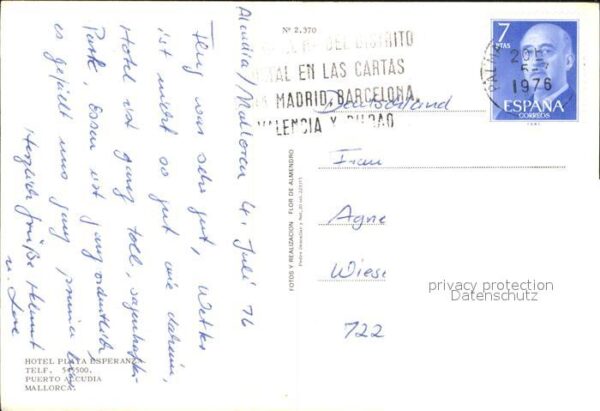 Alcudia/Mallorca 4. Juli 76
Flug war sehr gut, Wetter
ist nicht so gut wie daheim,
Hotel ist ganz toll, sagenhafter
Park, Essen ist ganz ordentlich,
es gefällt uns ganz prima
Herzliche Grüße Helmut
u.
HOTEL PLAYA ESPERANZA
TELF. 54 500.
PUERTO ALCUDIA
MALLORCA.
Nº 2.370
FOTOS Y REALIZACION FLOR DE ALMENDRO
DEL DISTRITO
POSTAL EN LAS CARTAS
MADRID, BARCELONA
VALENCIA Y BILBAO
PALMA
1976
7
PTAS
ESPAÑA
CORREOS
Deutschland
Frau
Agne
Wiese
722
privacy protection
Datenschutz